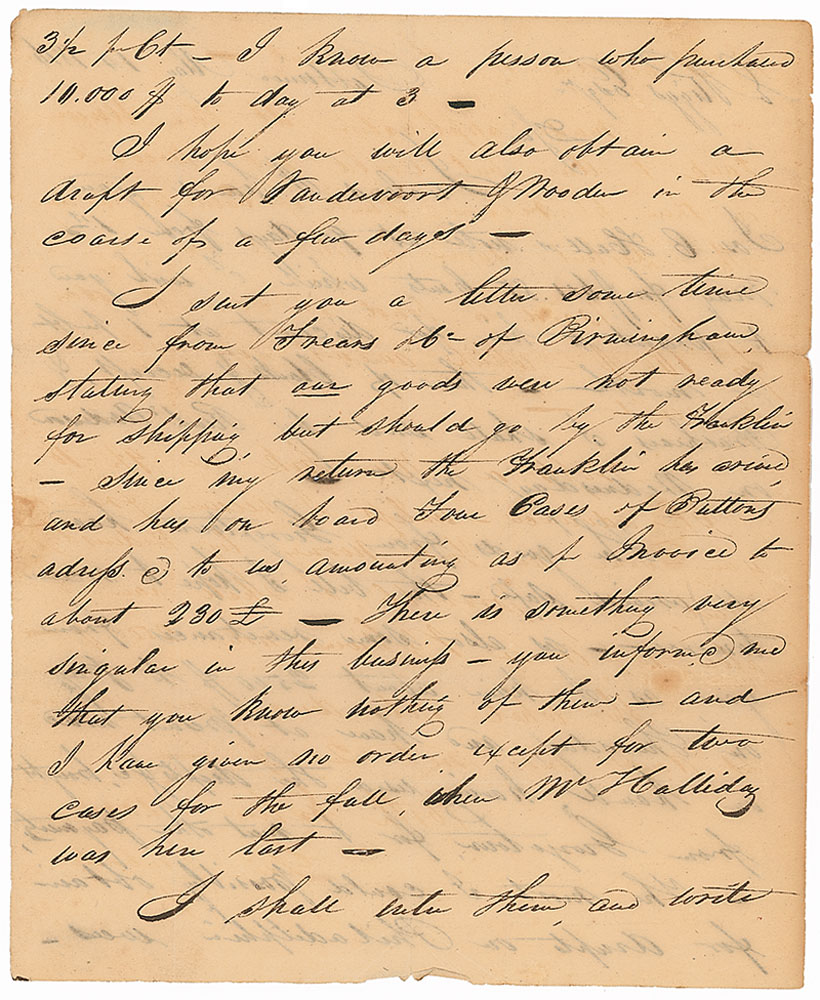 3½ pr Ct — I know a person who purchased
10.000 $ to day at 3 —
I hope you will also obtain a
draft for Vandervoort & Wooden in the
coarse of a few days —
I sent you a letter some time
since from Frears & Co of Birmingham,
stating that our goods were not ready
for shipping but should go by the Franklin
— since my return the Franklin has arived
and has on board Four Cases of Buttons
adress.d to us, amounting as pr Invoice to
about 230 £ — There is something very
singular in this business — you inform.d me
that you know nothing of them — and
I have given no order except for two
cases for the fall, when Mr Halliday
was here last —
I shall enter them, and write